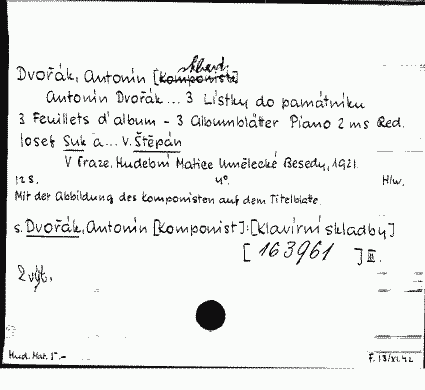 sklad.
Dvořák, Antonín [Komponist]
Antonín Dvořák... 3 Lístky do památníku
3 Feuillets d'album - 3 Albumblätter Piano 2 ms Red.
Josef Suk a... V. Štěpán
V Praze. Hudební Matice Umělecké Besedy, 1921.
12 S. 4°. H/w.
Mit der Abbildung des Komponisten auf dem Titelblatte
s. Dvořák, Antonín [Komponist]: [Klavírní skladby]
[163961] III.
2 výt.
Hud. Mat. 5.-
F. 13/XI.42